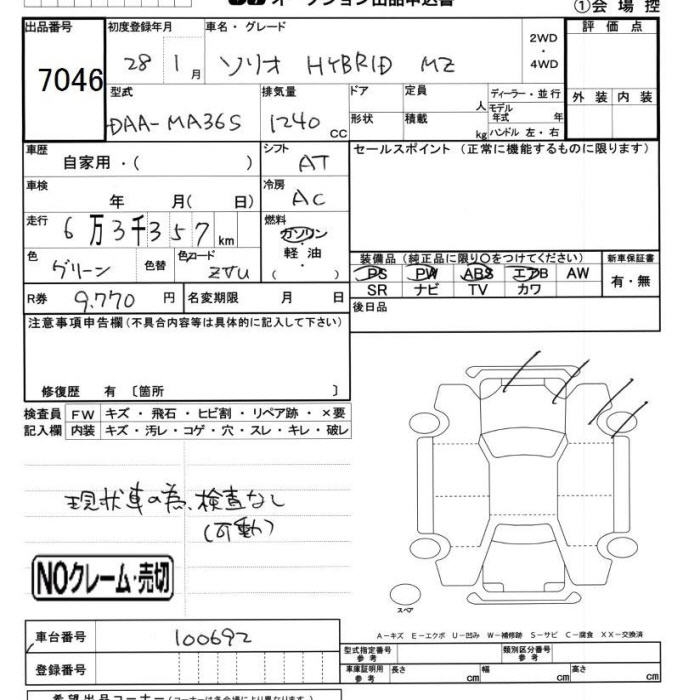 オークション出品申込書
①会場控
出品番号 初度登録年月 車名・グレード 評価点
7046 28 1月 ソリオ HYBRID MZ 2WD・4WD
型式 排気量 ドア 定員 人 ディーラー・並行 外装 内装
DAA-MA36S 1240 CC 形状 積載 kg モデル年式 年 ハンドル 左・右
車歴 自家用・( ) シフト AT セールスポイント (正常に機能するものに限ります)
車検 年 月( 日) 冷房 AC
走行 6万3千357km 燃料 ガソリン・軽油・( )
色 グリーン 色替 色コード ZVU 装備品 (純正品に限り○をつけてください) 新車保証書
PS PW ABS エアB AW 有・無
SR ナビ TV カワ
R券 9.770 円 名変期限 月 日 後日品
注意事項申告欄 (不具合内容等は具体的に記入して下さい)
修復歴 有 〔箇所 〕
検査員 FW キズ・飛石・ヒビ割・リペア跡・×要
記入欄 内装 キズ・汚レ・コゲ・穴・スレ・キレ・破レ
現状車の為、検査なし
(可動)
NOクレーム・売切
スペア
A-キズ E-エクボ U-凹み W-補修跡 S-サビ C-腐食 XX-交換済
車台番号 100692 型式指定番号 参考 類別区分番号 参考
登録番号 車庫証明用 参考 長さ cm 幅 cm 高さ cm
希望出品コーナー